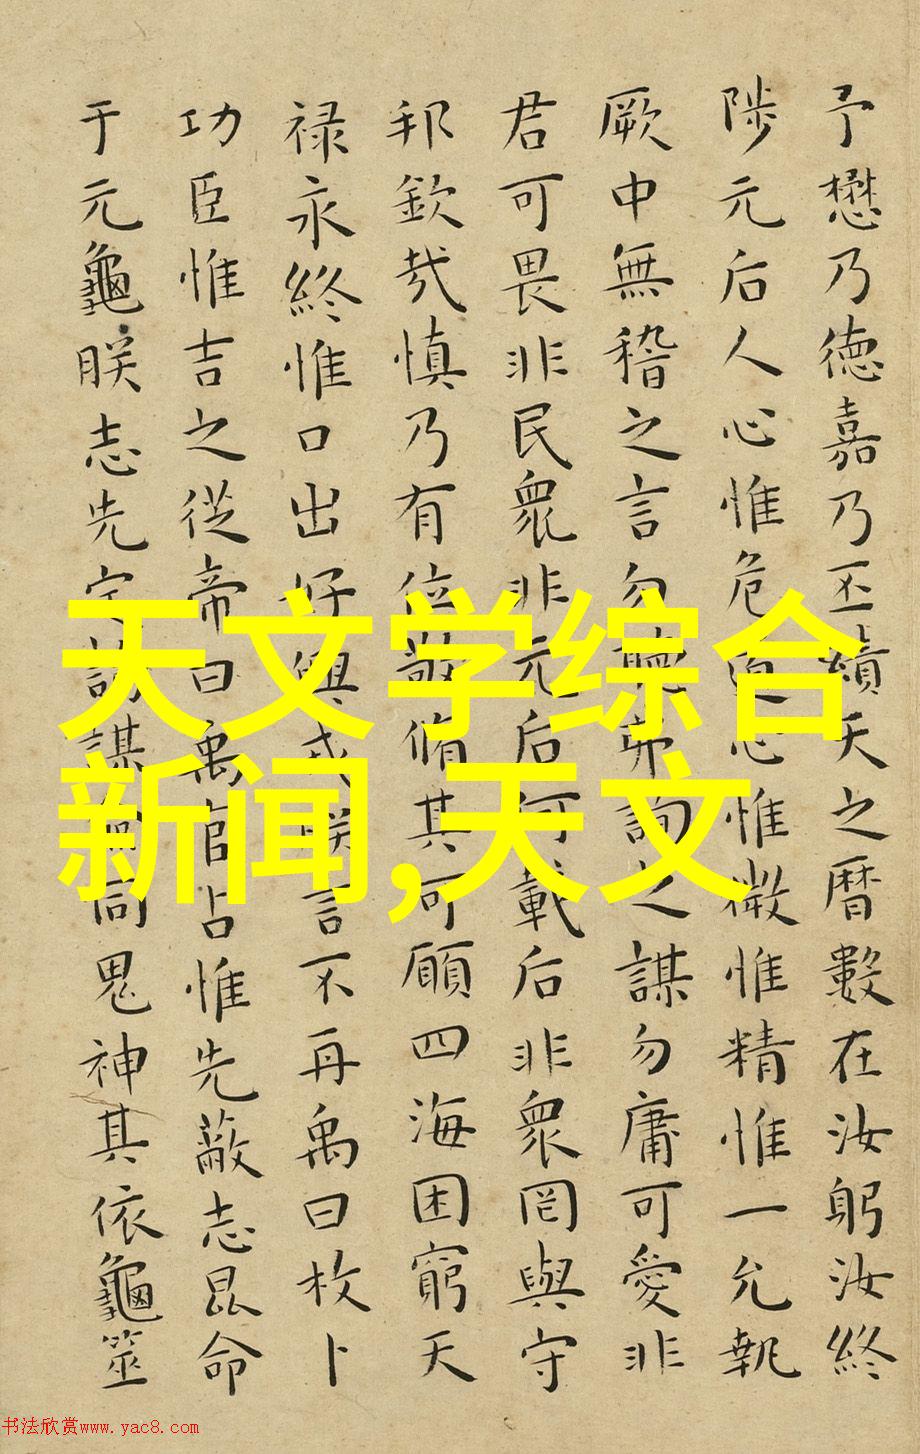 予懋乃徳嘉乃丕績天之暦數在汝躬汝終
陟元后人心惟危道心惟微惟精惟一允執
厥中無稽之言勿聽弗詢之謀勿庸可愛非
君可畏非民衆非元后何載后非衆罔與守
邦欽哉慎乃有位敬脩其可願四海困窮天
禄永終惟口出好興戎朕言不再禹曰枚卜
功臣惟吉之從帝曰禹官占惟先蔽志昆命
于元龜朕志先定詢謀僉同鬼神其依龜筮
天文学综合
新闻,天文
书法欣赏www.yac8.com